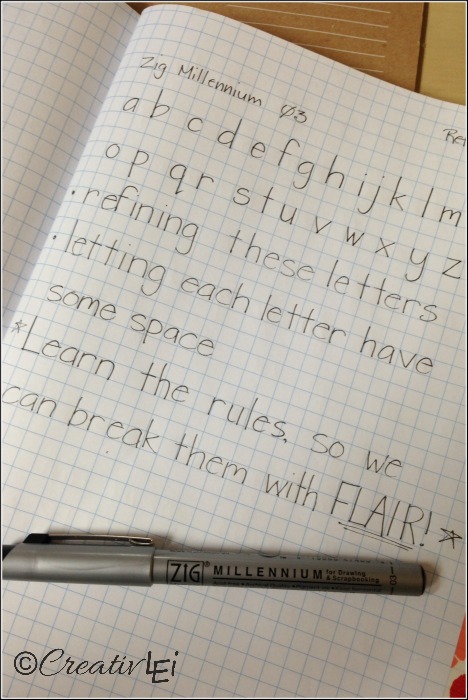 Zig Millennium 03
Re
a b c d e f g h i j k l m
o p q r s t u v w x y z
• refining these letters
• letting each letter have
some space
☆Learn the rules, so we
can break them with FLAIR! ☆
ZIG MILLENNIUM for Drawing & Scrapbooking
©CreativLEi